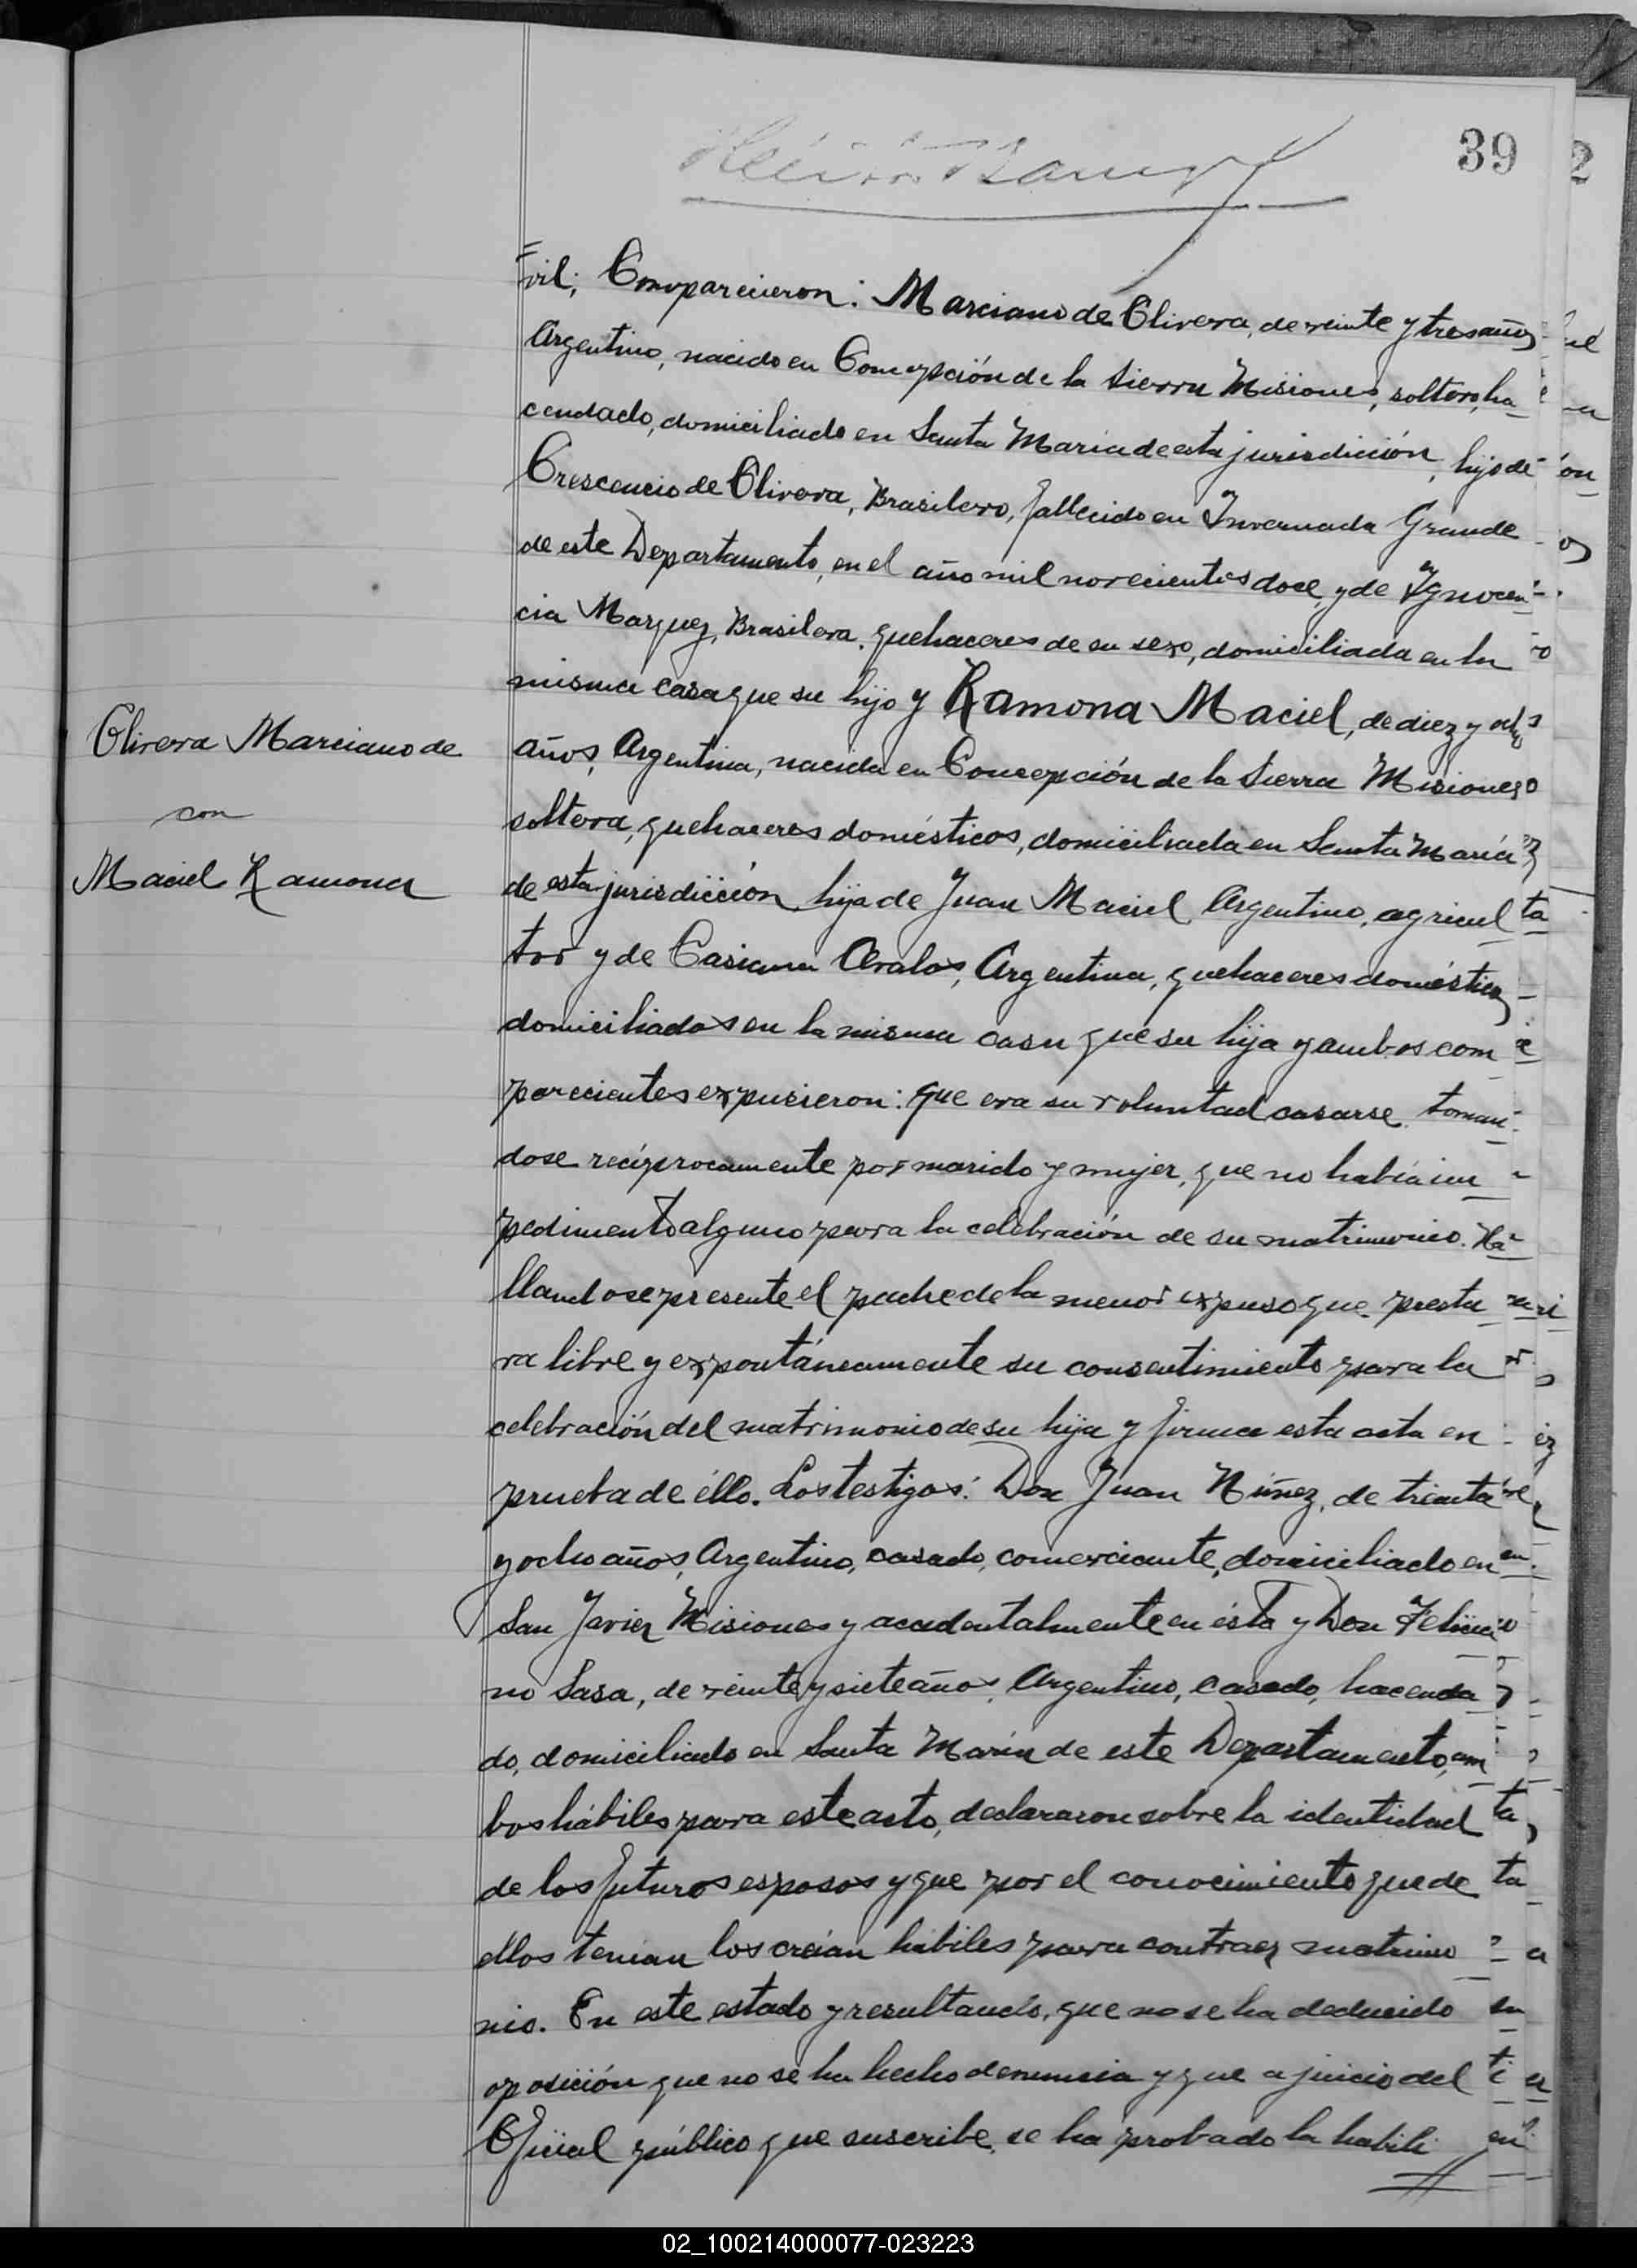 39
vil; Comparecieron: Marciano de Olivera, de veinte y tres años
Argentino, nacido en Concepción de la Sierra Misiones, soltero, ha
cendado, domiciliado en Santa María de esta jurisdicción, hijo de
Crescencio de Olivera, Brasilero, fallecido en Invernada Grande
de este Departamento, en el año mil novecientos doce, y de Ygnocen-
cia Marquez, Brasilera, quehaceres de su sexo, domiciliada en la
misma casa que su hijo y Ramona Maciel, de diez y ocho
Olivera Marciano de
con
Maciel Ramona
años, Argentina, nacida en Concepción de la Sierra Misiones
soltera, quehaceres domésticos, domiciliada en Santa María
de esta jurisdicción, hija de Juan Maciel Argentino, agricul
tor y de Casiana Avalos, Argentina, quehaceres domésticos
domiciliados en la misma casa que su hija y ambos com
parecientes expusieron: que era su voluntad casarse toman-
dose recíprocamente por marido y mujer, que no había im
pedimento alguno para la celebración de su matrimonio. Ha-
llandose presente el padre de la menor expuso que presta
ra libre y expontáneamente su consentimiento para la
celebración del matrimonio de su hija y firma esta acta en
prueba de éllo. Los testigos: Don Juan Núñez, de treinta
y ocho años, Argentino, casado, comerciante, domiciliado en
San Javier Misiones y accidentalmente en ésta y Don Felicia
no Sasa, de veinte y siete años, Argentino, casado, hacenda
do, domiciliado en Santa María de este Departamento, am
bos hábiles para este acto, declararon sobre la identidad
de los futuros esposos y que por el conocimiento que de
ellos tenian los creian hábiles para contraer matrimo
nio. En este estado y resultando, que no se ha deducido
oposición que no se ha hecho denuncia y que a juicio del
Oficial público que suscribe, se ha probado la habili
02_100214000077-023223